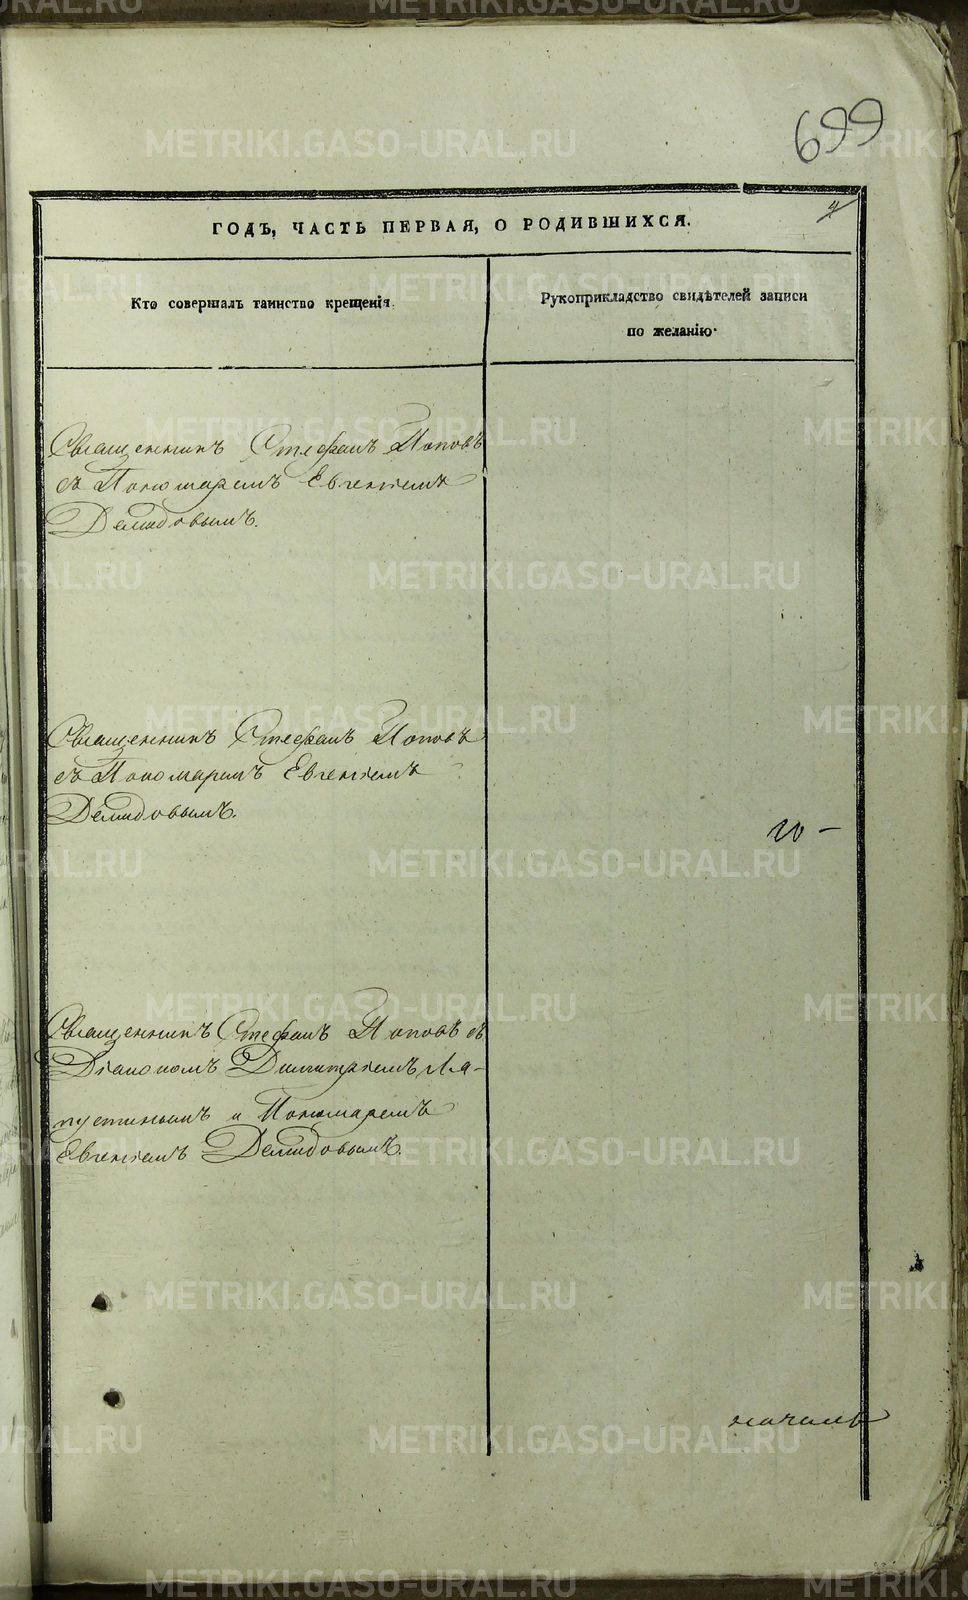 699
4
ГОДЪ, ЧАСТЬ ПЕРВАЯ, О РОДИВШИХСЯ.
Кто совершалъ таинство крещенія.
Рукоприкладство свидѣтелей записи
по желанію.
Священникъ Стефанъ Поповъ
съ Пономаремъ Евгеніемъ
Демидовымъ.
Священникъ Стефанъ Поповъ
съ Пономаремъ Евгеніемъ
Демидовымъ.
Священникъ Стефанъ Поповъ съ
Діакономъ Димитріемъ Ла-
пустинымъ и Пономаремъ
Евгеніемъ Демидовымъ.
METRIKI.GASO-URAL.RU